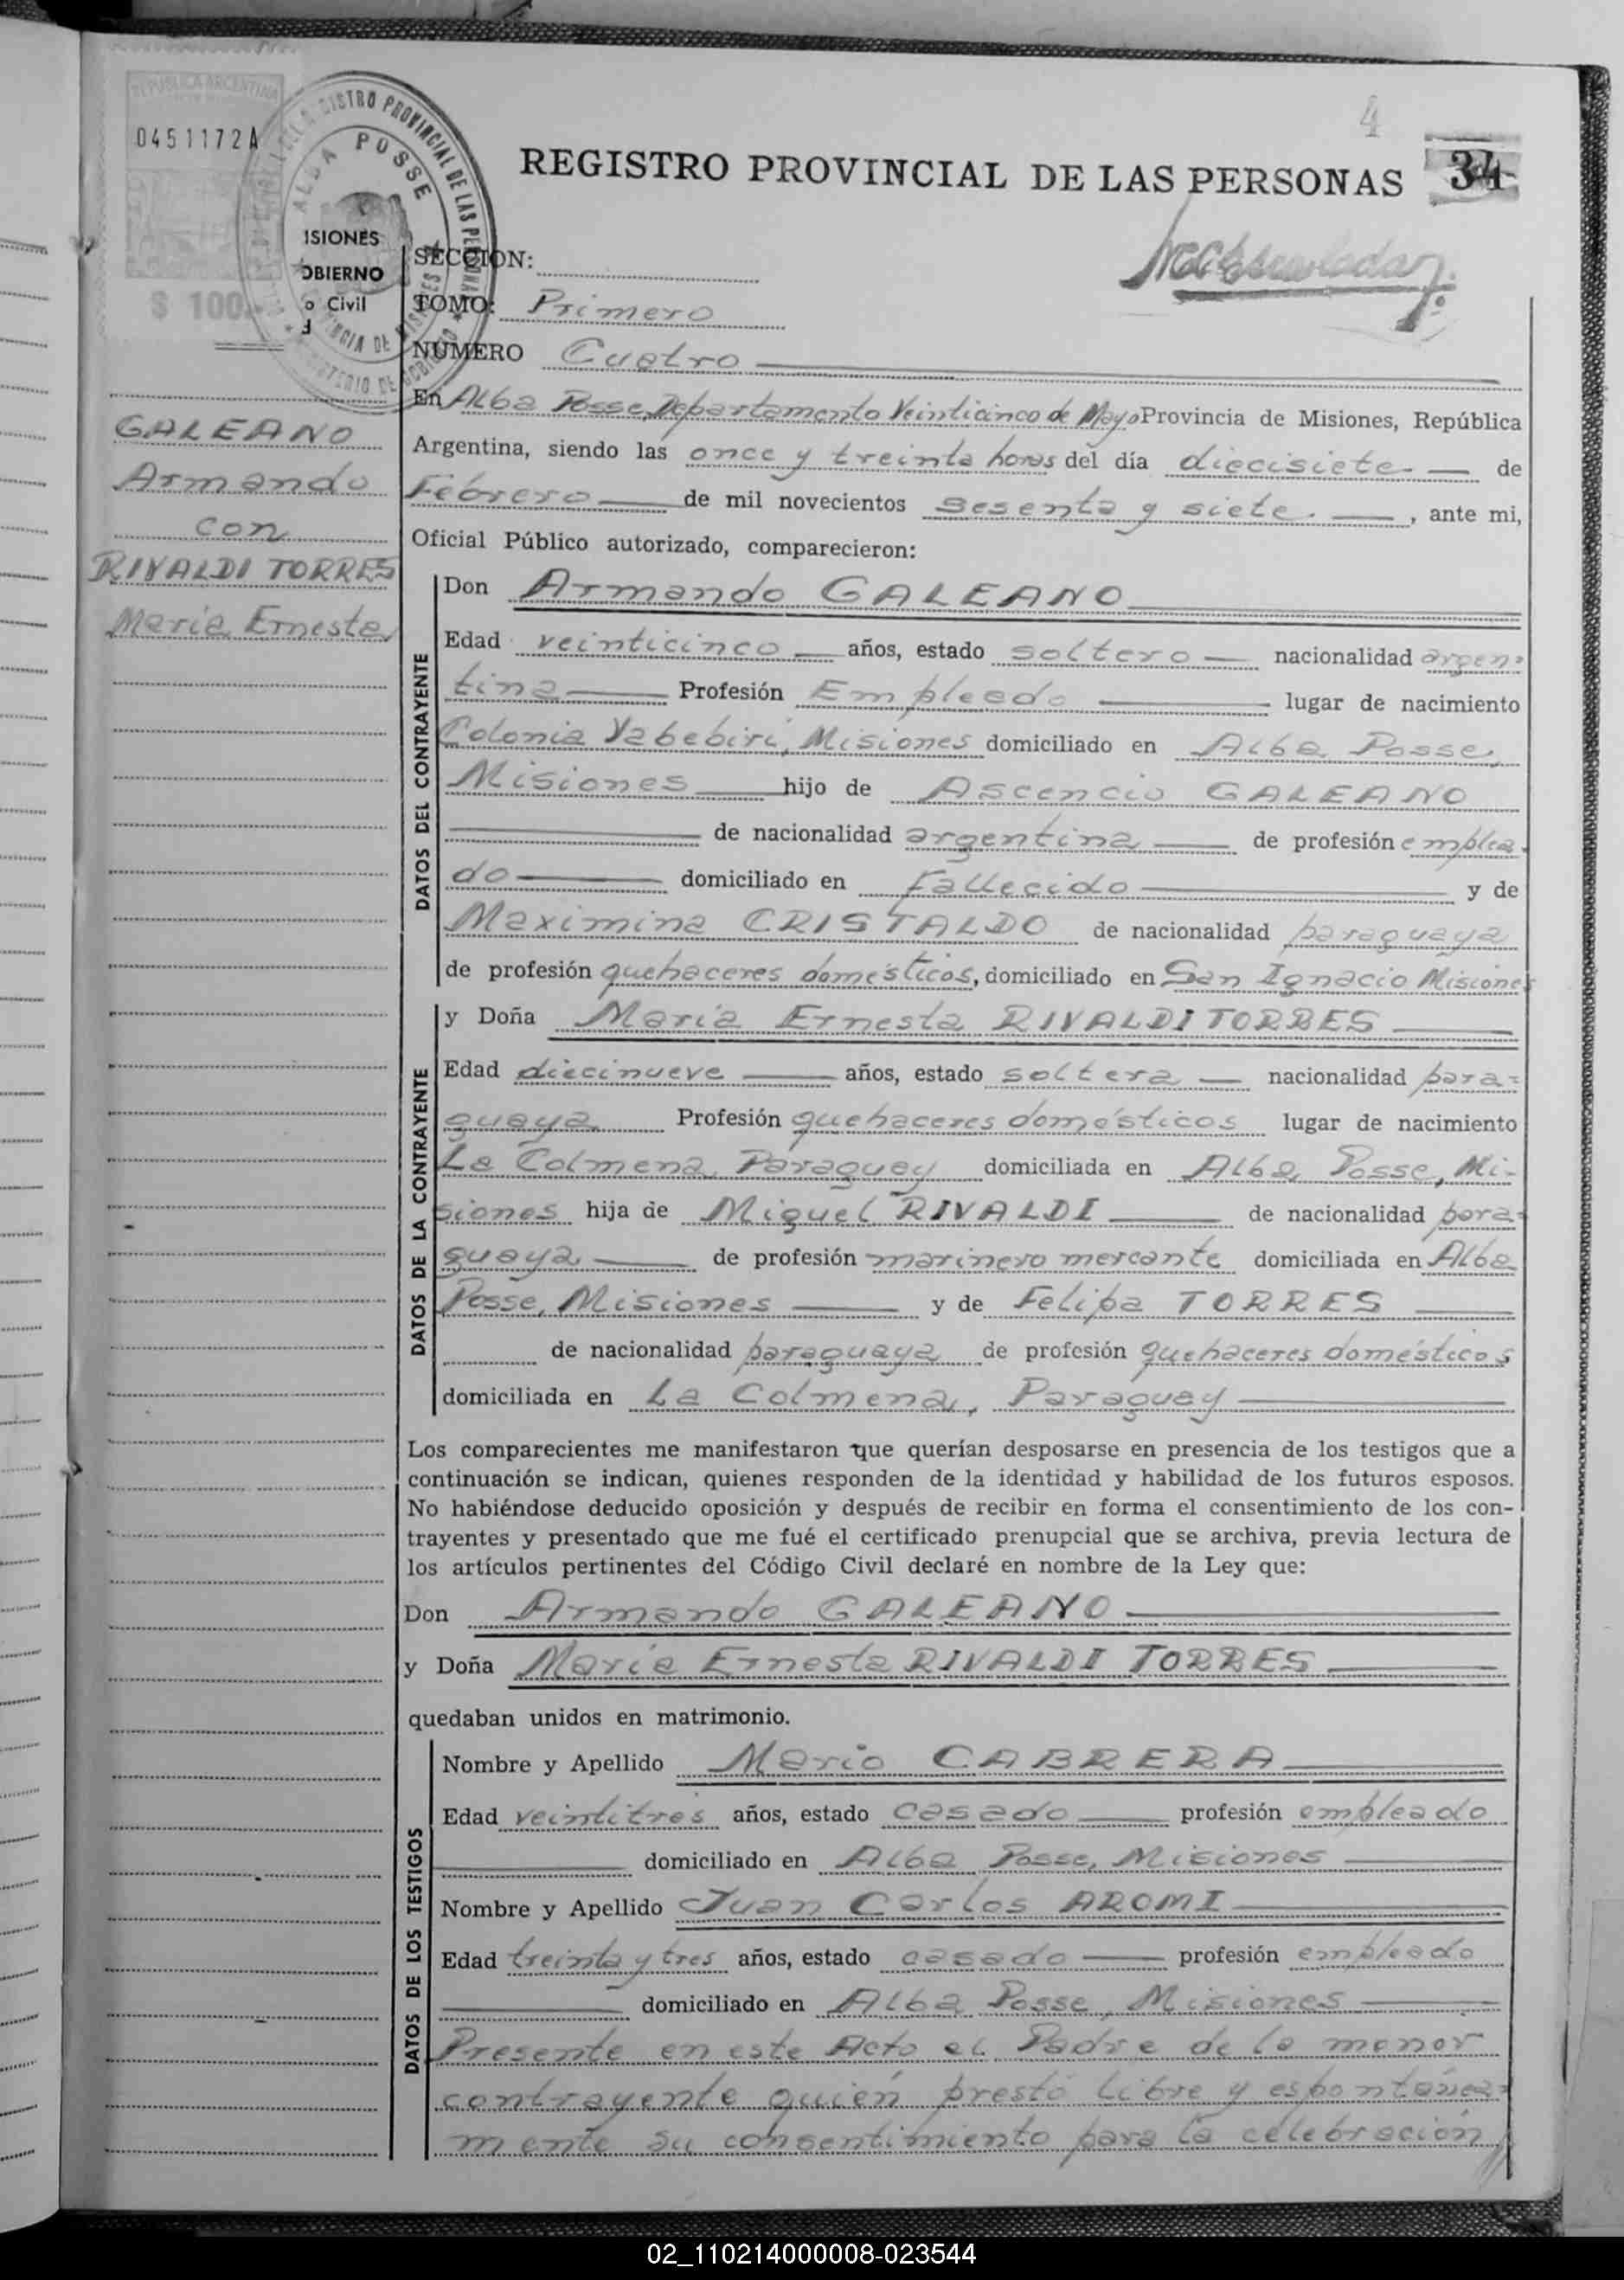 4
REPUBLICA ARGENTINA
0451172A
$ 100
REGISTRO PROVINCIAL DE LAS PERSONAS
ALBA POSSE
ISIONES
OBIERNO
o Civil
REGISTRO PROVINCIAL DE LAS PERSONAS 34
SECCION:
TOMO: Primero
NUMERO Cuatro
En Alba Posse, Departamento Veinticinco de Mayo Provincia de Misiones, República
Argentina, siendo las once y treinta horas del día diecisiete de
Febrero de mil novecientos sesenta y siete. , ante mi,
Oficial Público autorizado, comparecieron:
GALEANO
Armando
con
RIVALDI TORRES
María Ernesta
DATOS DEL CONTRAYENTE
Don Armando GALEANO
Edad veinticinco años, estado soltero nacionalidad argen-
tina Profesión Empleado lugar de nacimiento
Colonia Yabebirí, Misiones domiciliado en Alba Posse,
Misiones hijo de Ascencio GALEANO
de nacionalidad argentina de profesión emplea-
do domiciliado en Fallecido y de
Maximina CRISTALDO de nacionalidad paraguaya
de profesión quehaceres domésticos, domiciliado en San Ignacio Misiones
DATOS DE LA CONTRAYENTE
y Doña María Ernesta RIVALDI TORRES
Edad diecinueve años, estado soltera nacionalidad para-
guaya Profesión quehaceres domésticos lugar de nacimiento
La Colmena, Paraguay domiciliada en Alba Posse, Mi-
siones hija de Miguel RIVALDI de nacionalidad para-
guaya de profesión marinero mercante domiciliada en Alba
Posse, Misiones y de Felipa TORRES
de nacionalidad paraguaya de profesión quehaceres domésticos
domiciliada en La Colmena, Paraguay
Los comparecientes me manifestaron que querían desposarse en presencia de los testigos que a
continuación se indican, quienes responden de la identidad y habilidad de los futuros esposos.
No habiéndose deducido oposición y después de recibir en forma el consentimiento de los con-
trayentes y presentado que me fué el certificado prenupcial que se archiva, previa lectura de
los artículos pertinentes del Código Civil declaré en nombre de la Ley que:
Don Armando GALEANO
y Doña María Ernesta RIVALDI TORRES
quedaban unidos en matrimonio.
DATOS DE LOS TESTIGOS
Nombre y Apellido Mario CABRERA
Edad veintitres años, estado casado profesión empleado
domiciliado en Alba Posse, Misiones
Nombre y Apellido Juan Carlos AROMI
Edad treinta y tres años, estado casado profesión empleado
domiciliado en Alba Posse, Misiones
Presente en este Acto el Padre de la menor
contrayente quién prestó libre y espontánea-
mente su consentimiento para la celebración
02_110214000008-023544